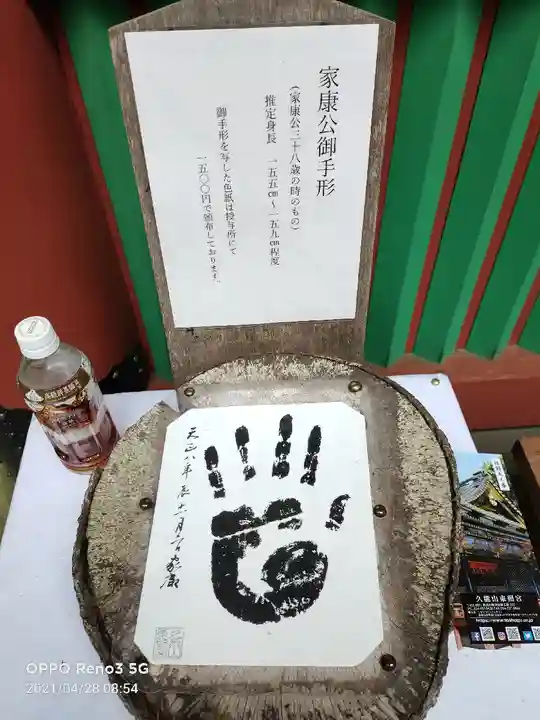 家康公御手形
（家康公三十八歳の時のもの）
推定身長　一五五㎝～一五九㎝程度
御手形を写した色紙は授与所にて
一五〇〇円で頒布しております。
天正八年辰十一月
家康
久能山東照宮
OPPO Reno3 5G
2021/04/28 08:54